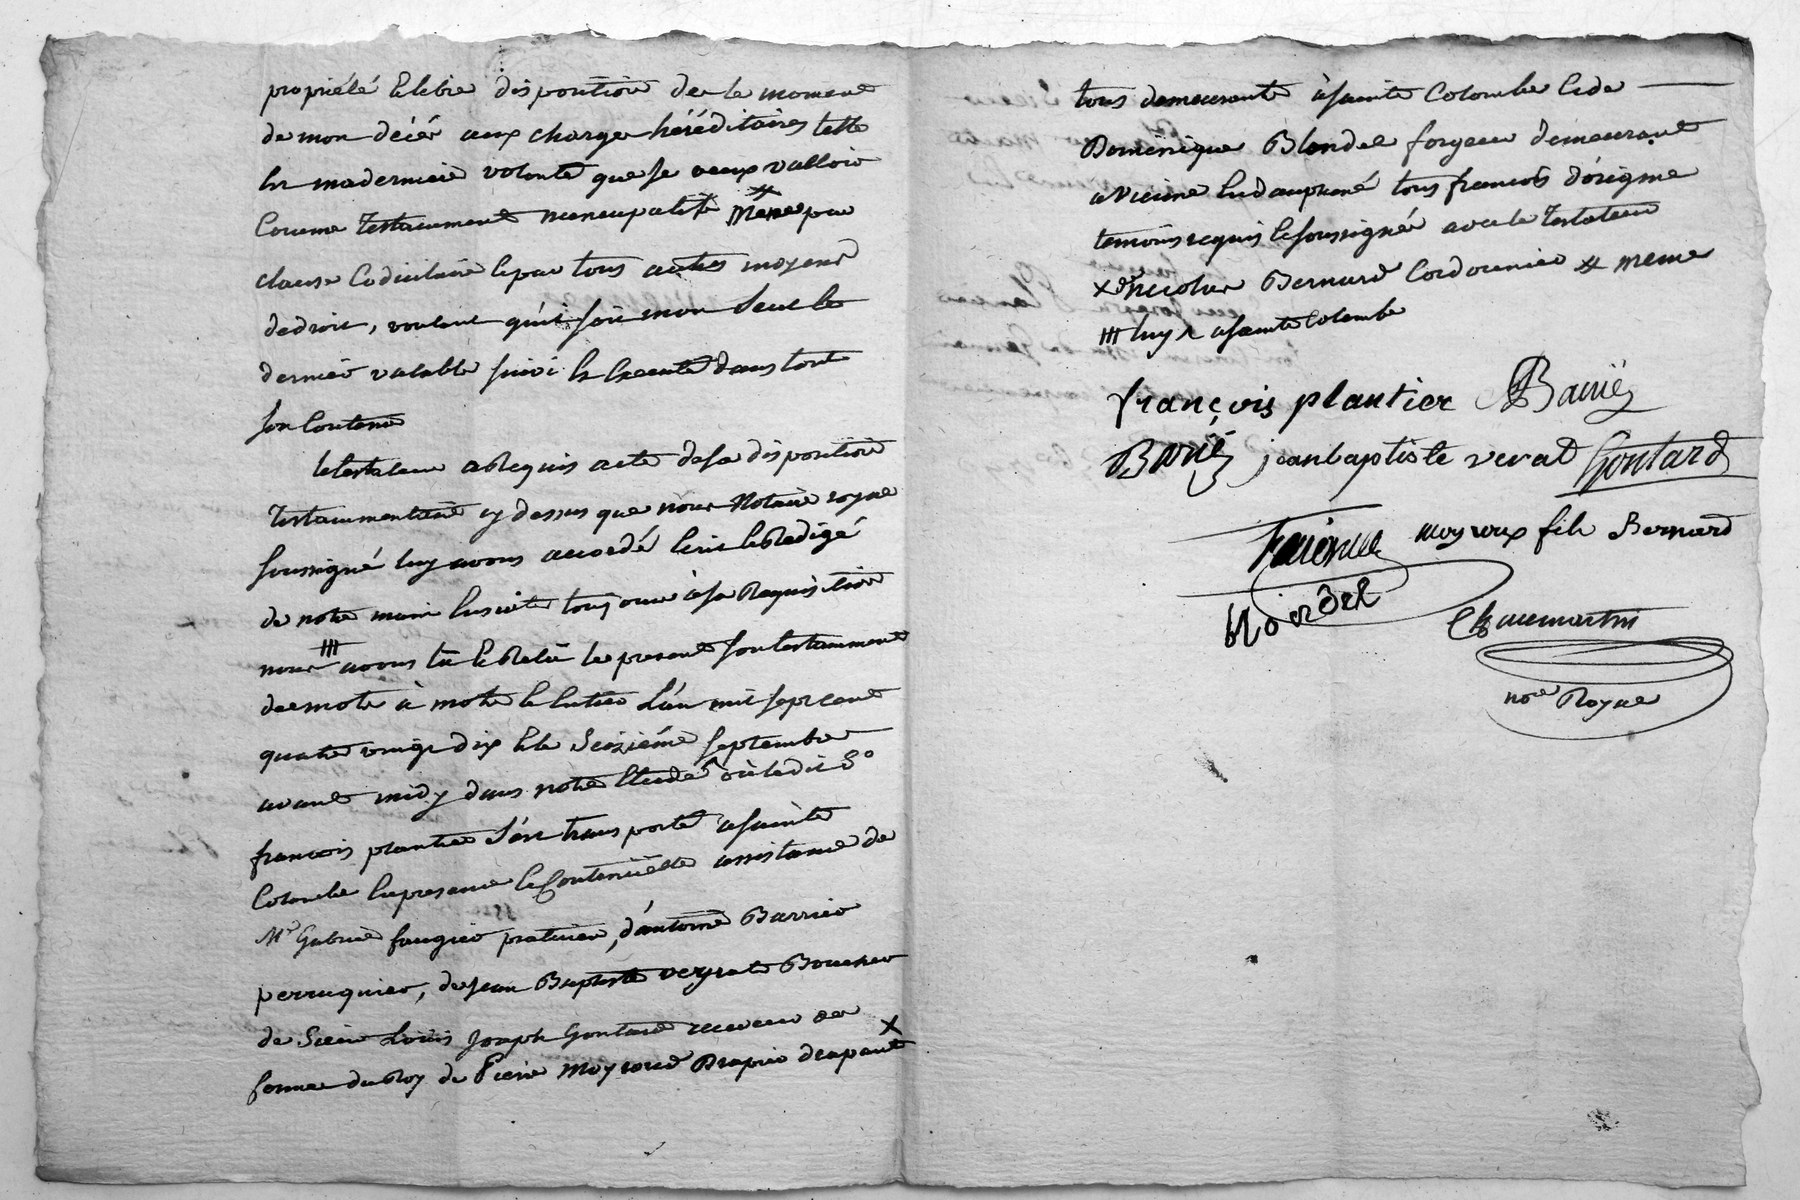 propriété & libre disposition des le moment
de mon décés aux charges héréditaires telle
est ma derniere volonté que je veux valloir
comme testament nuncupatif # meme par
clause codicilaire & par tous autres moyens
de droit, voulant qu'il soit mon seul &
dernier valable suivi & executé dans tout
son contenu
le testateur a requis acte de sa disposition
testammentaire cy dessus que nous notaire royal
soussigné luy avons accordé écrit & redigé
de notre main ensuite toujours a sa requisition
nous ||| avons lû & relû le present son testamment
de mots à mots & entier L'an mil sept cent
quatre vingt dix & le seizième septembre
avant midy dans notre Etude où ledit Sr
francois plantier s'est transporté a sainte
Colombe en presence & continuelle assistance de
Mr Gabriel faugier praticien, d'antoine Barrier
perruquier, de jean Baptiste veyrat Boucher
de Sieur Loüis Joseph Gontard receveur des
fermes du Roy de Pierre moyroud Drapier drapant x
tous demeurants à sainte Colombe & de
Doménique Blondel forgeur demeurant
a Vienne en dauphiné tous francois d'origine
temoins requis & soussignés avec le testateur
x de nicolas Bernard Cordonnier # meme
||| luy ^ a sainte Colombe
françois plantier Barrié
Barrié jean baptiste verat Gontard
moyroux fils Bernard
blondel
Chaumartin
nore Royal